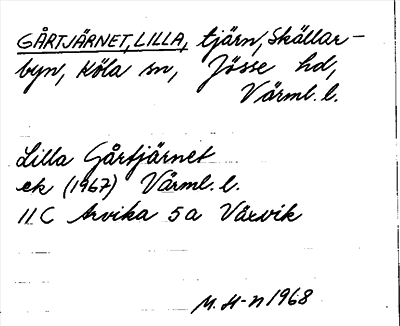 GÅRTJÄRNET, LILLA, tjärn, Skällar-
byn, Köla sn, Jösse hd,
Värml. l.
Lilla Gårtjärnet
ek (1967) Värml. l.
11C Arvika 5a Växvik
M. H-n 1968